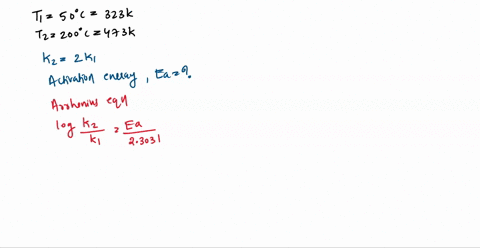 T₁ = 50°C = 323k
T₂ = 200°C = 473k
K₂ = 2K₁
Activation energy, Ea = ?
Arrhenius eqn
log K₂/K₁ = Ea/2.303